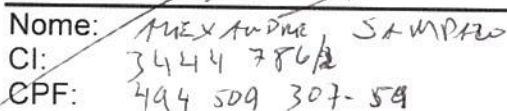 Nome: ALEXANDRE SAMPAIO
CI: 3444 786/2
CPF: 494 509 307-59